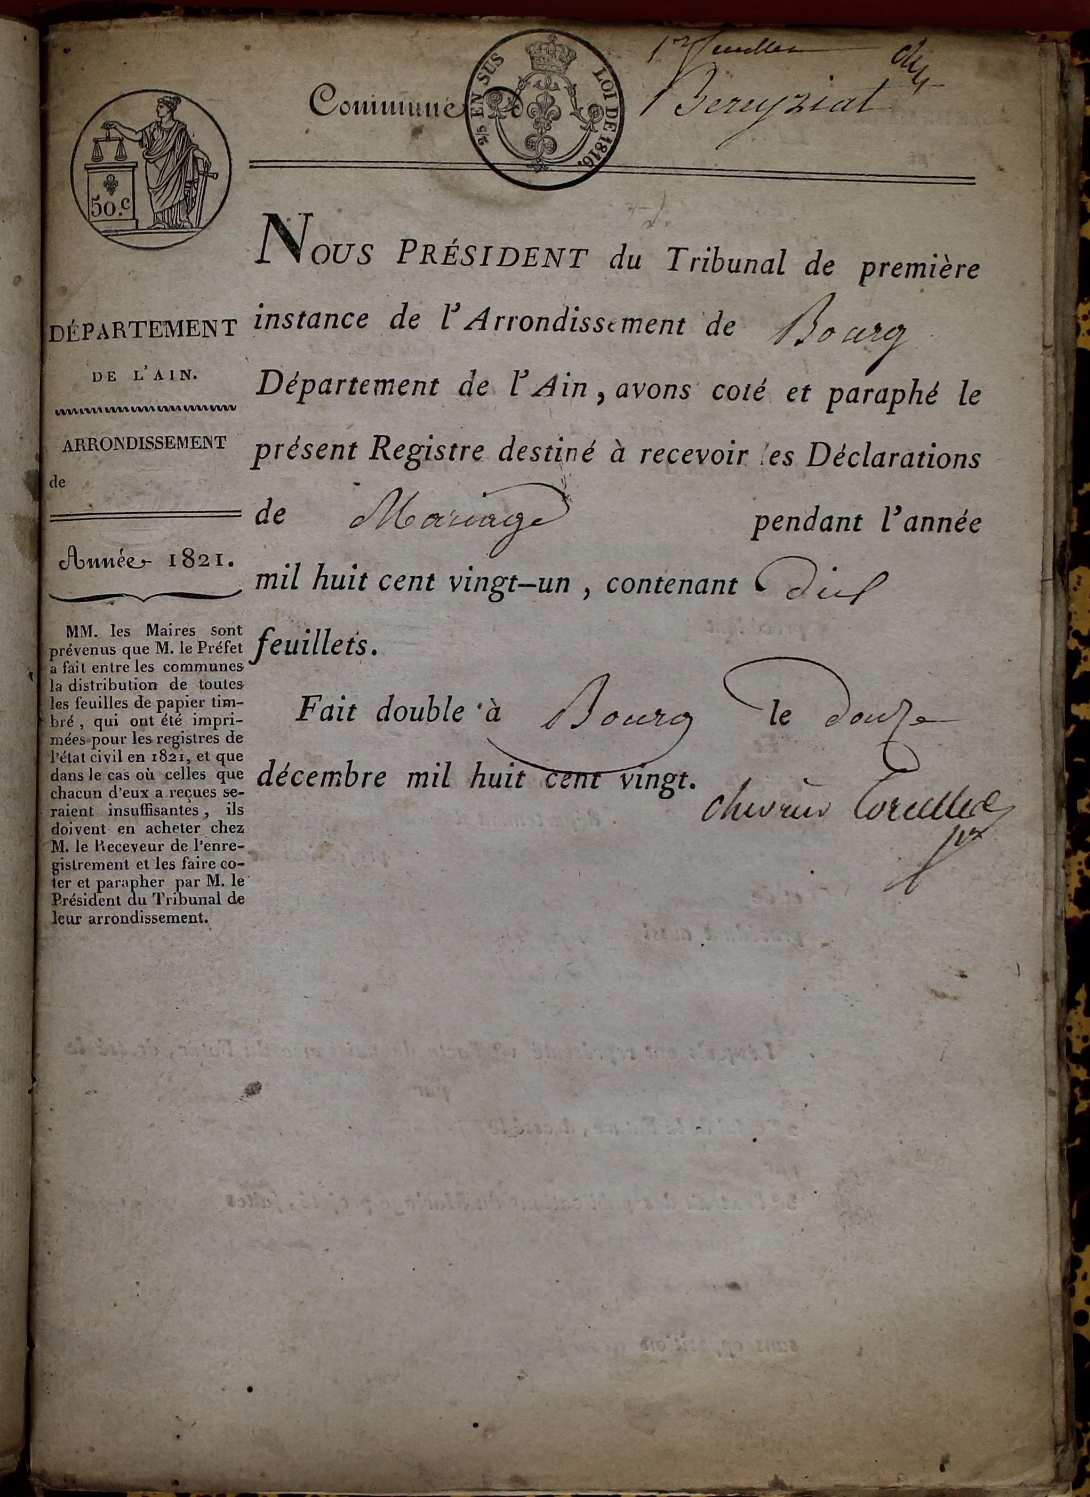 1er feuillet
Commune de Bereyziat
2/5 EN SUS LOI DE 1816.
50.c
NOUS PRÉSIDENT du Tribunal de première
instance de l'Arrondissement de Bourg
Département de l'Ain, avons coté et paraphé le
présent Registre destiné à recevoir les Déclarations
de Mariage pendant l'année
mil huit cent vingt-un, contenant dix
feuillets.
Fait double à Bourg le douze
décembre mil huit cent vingt.
DÉPARTEMENT
DE L'AIN.
ARRONDISSEMENT
de
Année 1821.
MM. les Maires sont
prévenus que M. le Préfet
a fait entre les communes
la distribution de toutes
les feuilles de papier tim-
bré, qui ont été impri-
mées pour les registres de
l'état civil en 1821, et que
dans le cas où celles que
chacun d'eux a reçues se-
raient insuffisantes, ils
doivent en acheter chez
M. le Receveur de l'enre-
gistrement et les faire co-
ter et parapher par M. le
Président du Tribunal de
leur arrondissement.